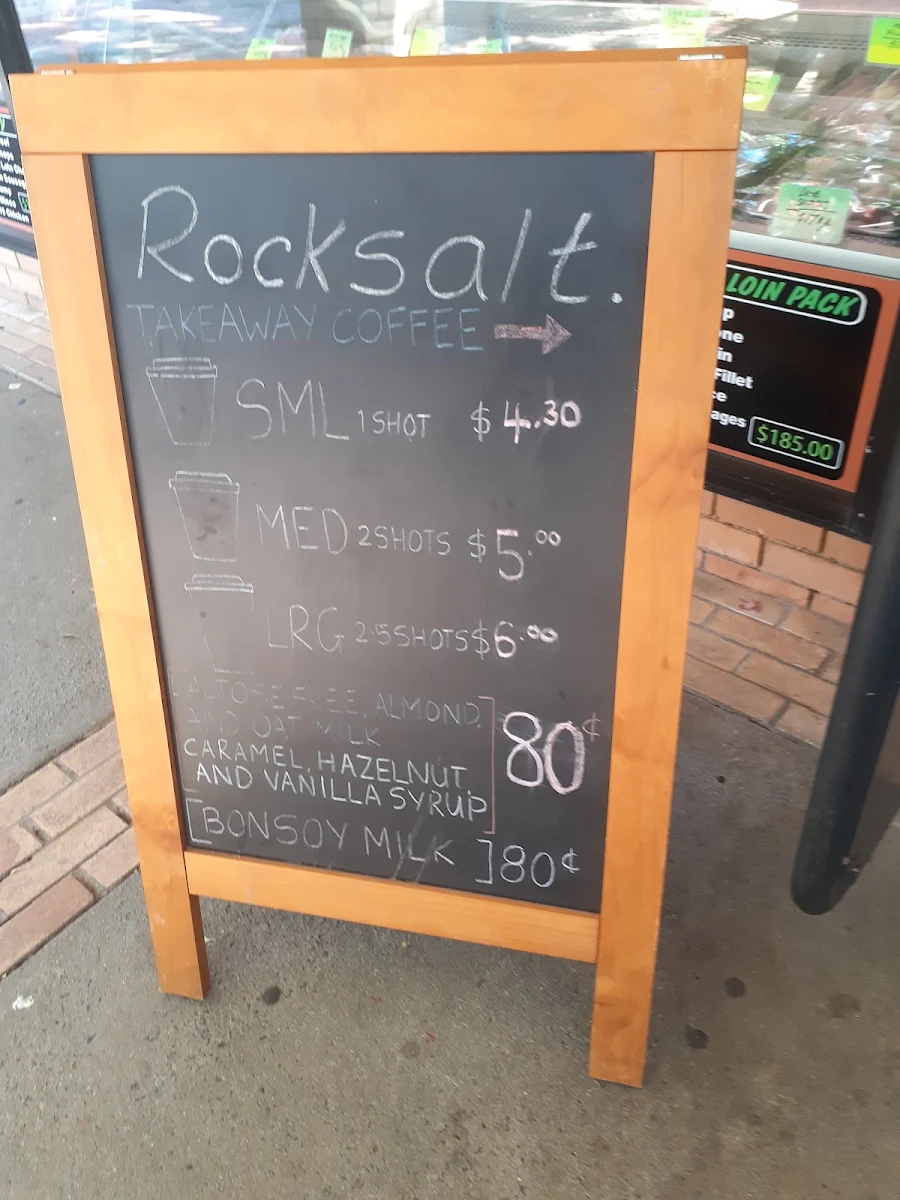 Rocksalt.
TAKEAWAY COFFEE
SML 1 SHOT $4.30
MED 2 SHOTS $5.00
LRG 2.5 SHOTS $6.00
LACTOSE FREE, ALMOND,
AND OAT MILK
80¢
CARAMEL, HAZELNUT,
AND VANILLA SYRUP
[BONSOY MILK ] 80¢
LOIN PACK
Fillet
$185.00